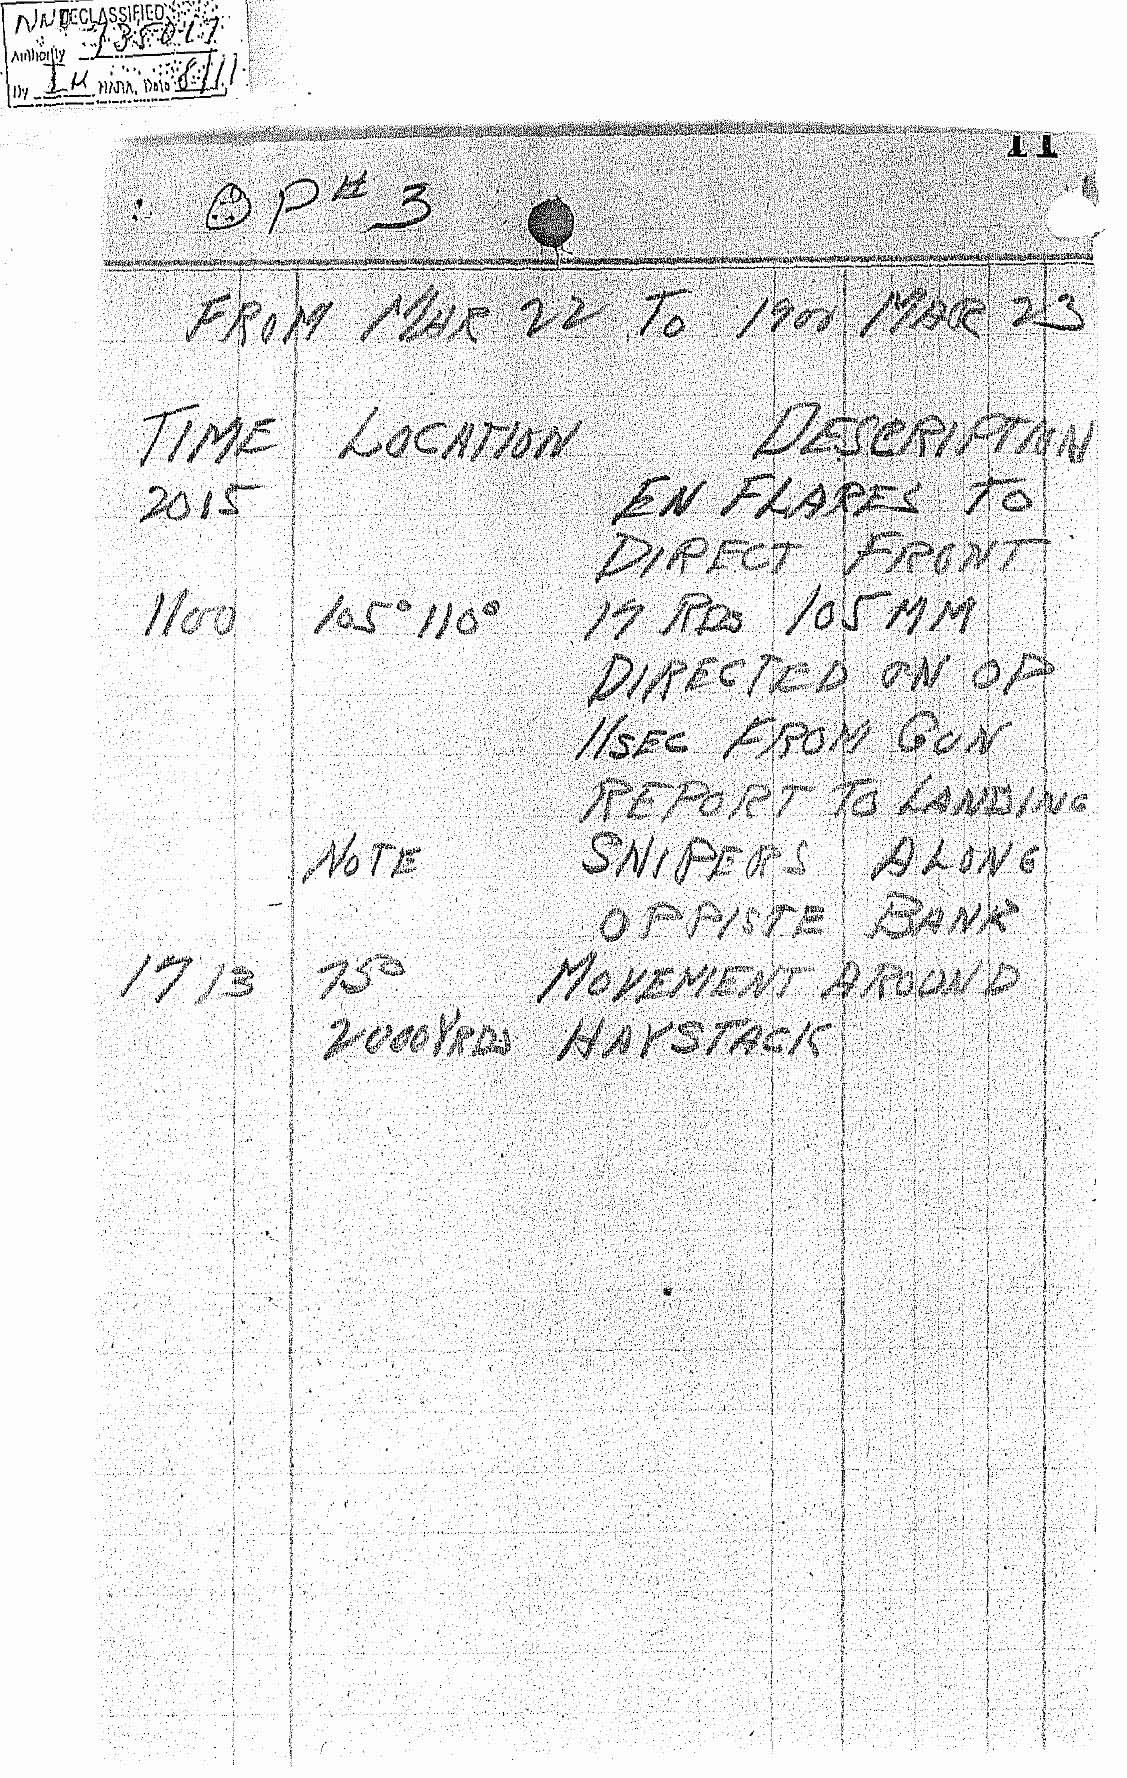 DECLASSIFIED
Authority NND 735017
By IK NARA, Date 8/11
11
OP # 3
FROM MAR 22 TO 1900 MAR 23
TIME LOCATION DESCRIPTION
2015 EN FLARES TO
DIRECT FRONT
1100 105° 110° 17 RDS 105 MM
DIRECTED ON OP
11 SEC FROM GUN
REPORT TO LANDING
NOTE SNIPERS ALONG
OPPISTE BANK
1713 75° MOVEMENT AROUND
2000 YRDS HAYSTACK